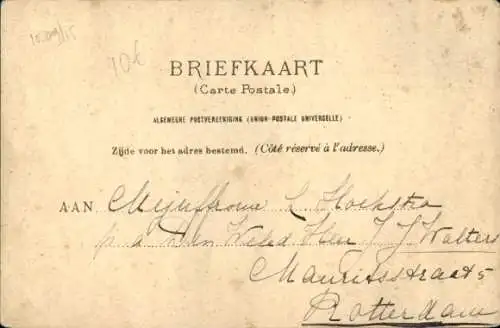 10.09/15
10€
BRIEFKAART
(Carte Postale.)
ALGEMEENE POSTVEREENIGING (UNION POSTALE UNIVERSELLE)
Zijde voor het adres bestemd. (Côté réservé à l'adresse.)
AAN Mejuffrouw L Hoekstra
p a den Weled Heer J J Walters
Mauritsstraat 5
Rotterdam